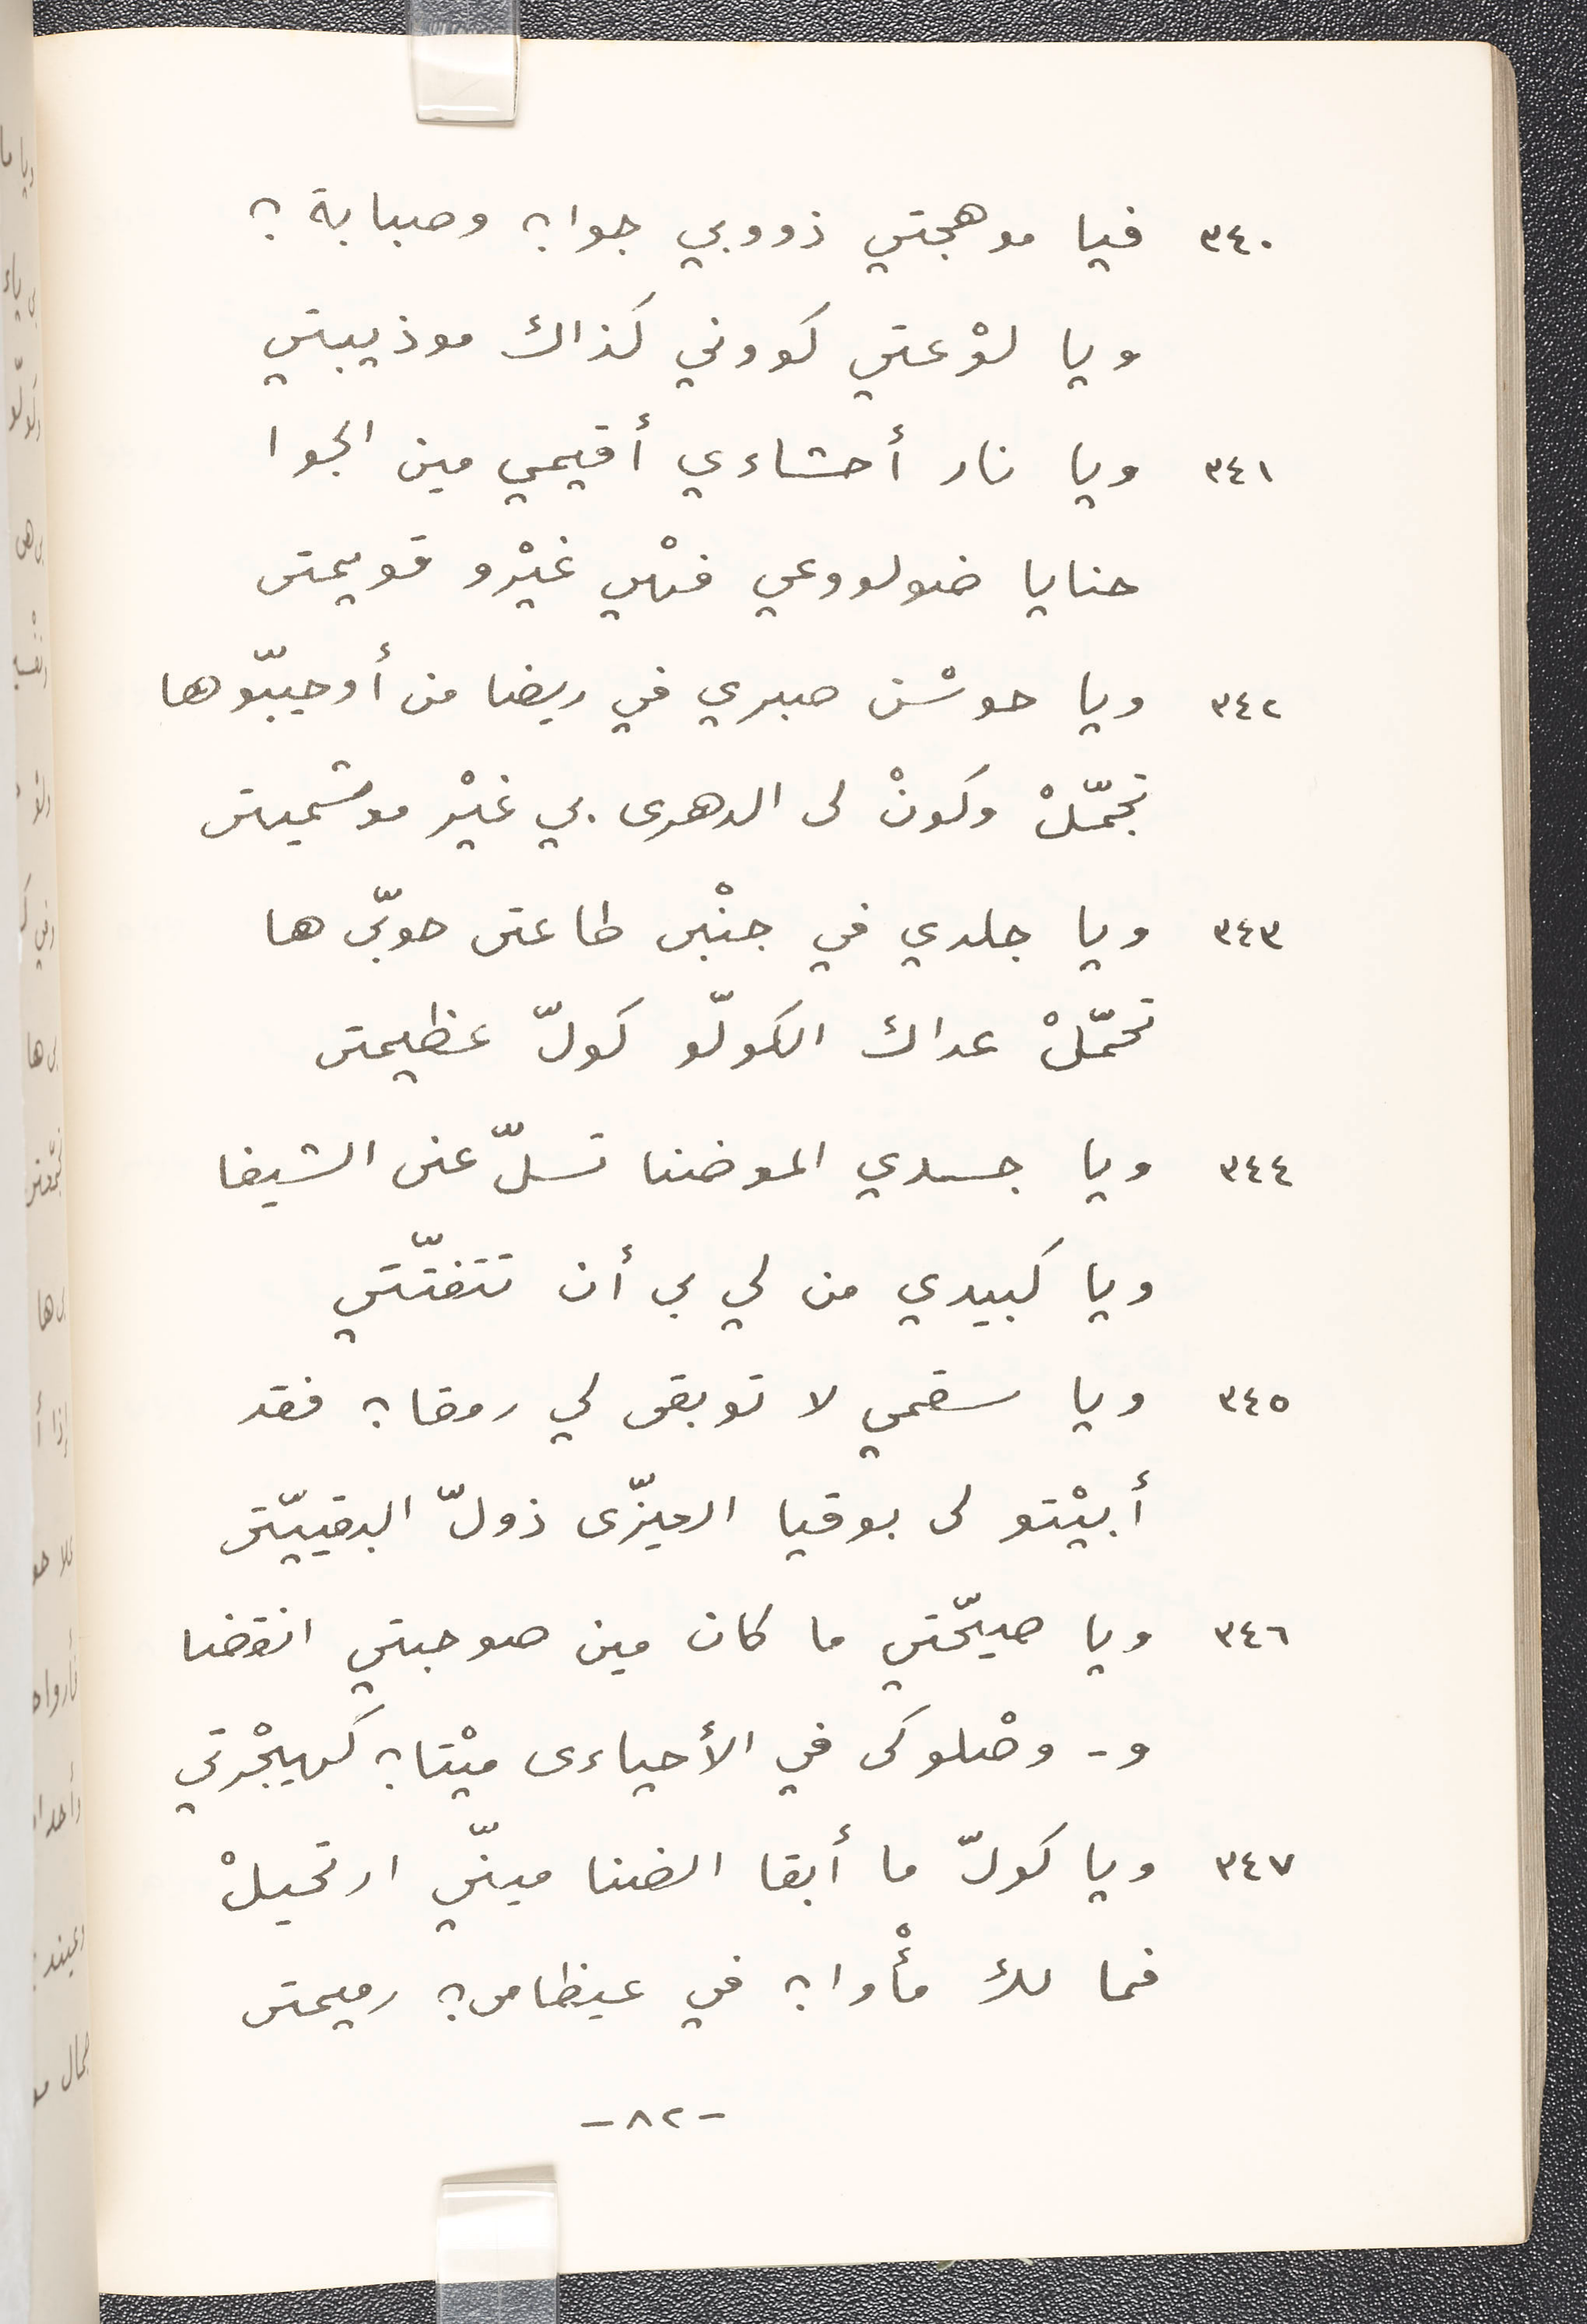 ٣٤٠ فيا موهجتي ذووبي جوا؟ وصبابة؟
ويا لوْعتي كووني كذاك موذيبتي
٣٤١ ويا نار أحشاءي أقيمي مين الجوا
حنايا ضولووعي فهْي غيْرو قويمتي
٣٤٢ ويا حوسْن صبري في ريضا من أوحيبّوها
تجمّلْ وكونْ لى الدهرى بي غيْر موشميتي
٣٤٣ ويا جلدي في جنْبى طاعتى حوبّى ها
تحمّلْ عداك الكولّو كولّ عظيمتى
٣٤٤ ويا جسدي الموضنا تسلّ عنى الشيفا
ويا كبيدي من لي بى أن تتفتّتي
٣٤٥ ويا سقمي لا توبقى لي رمقا؟ فقد
أبيْتو لى بوقيا العيزّى ذولّ البقييّتى
٣٤٦ ويا صيحّتي ما كان مين صوحبتي انقضا
و- وصْلوكى في الأحياءى ميْتا؟ كهيجْرتي
٣٤٧ ويا كولّ ما أبقا الضنا مينّي ارتحيلْ
فما لك مأْوا؟ في عيظامى؟ رميمتى
-٨٢-